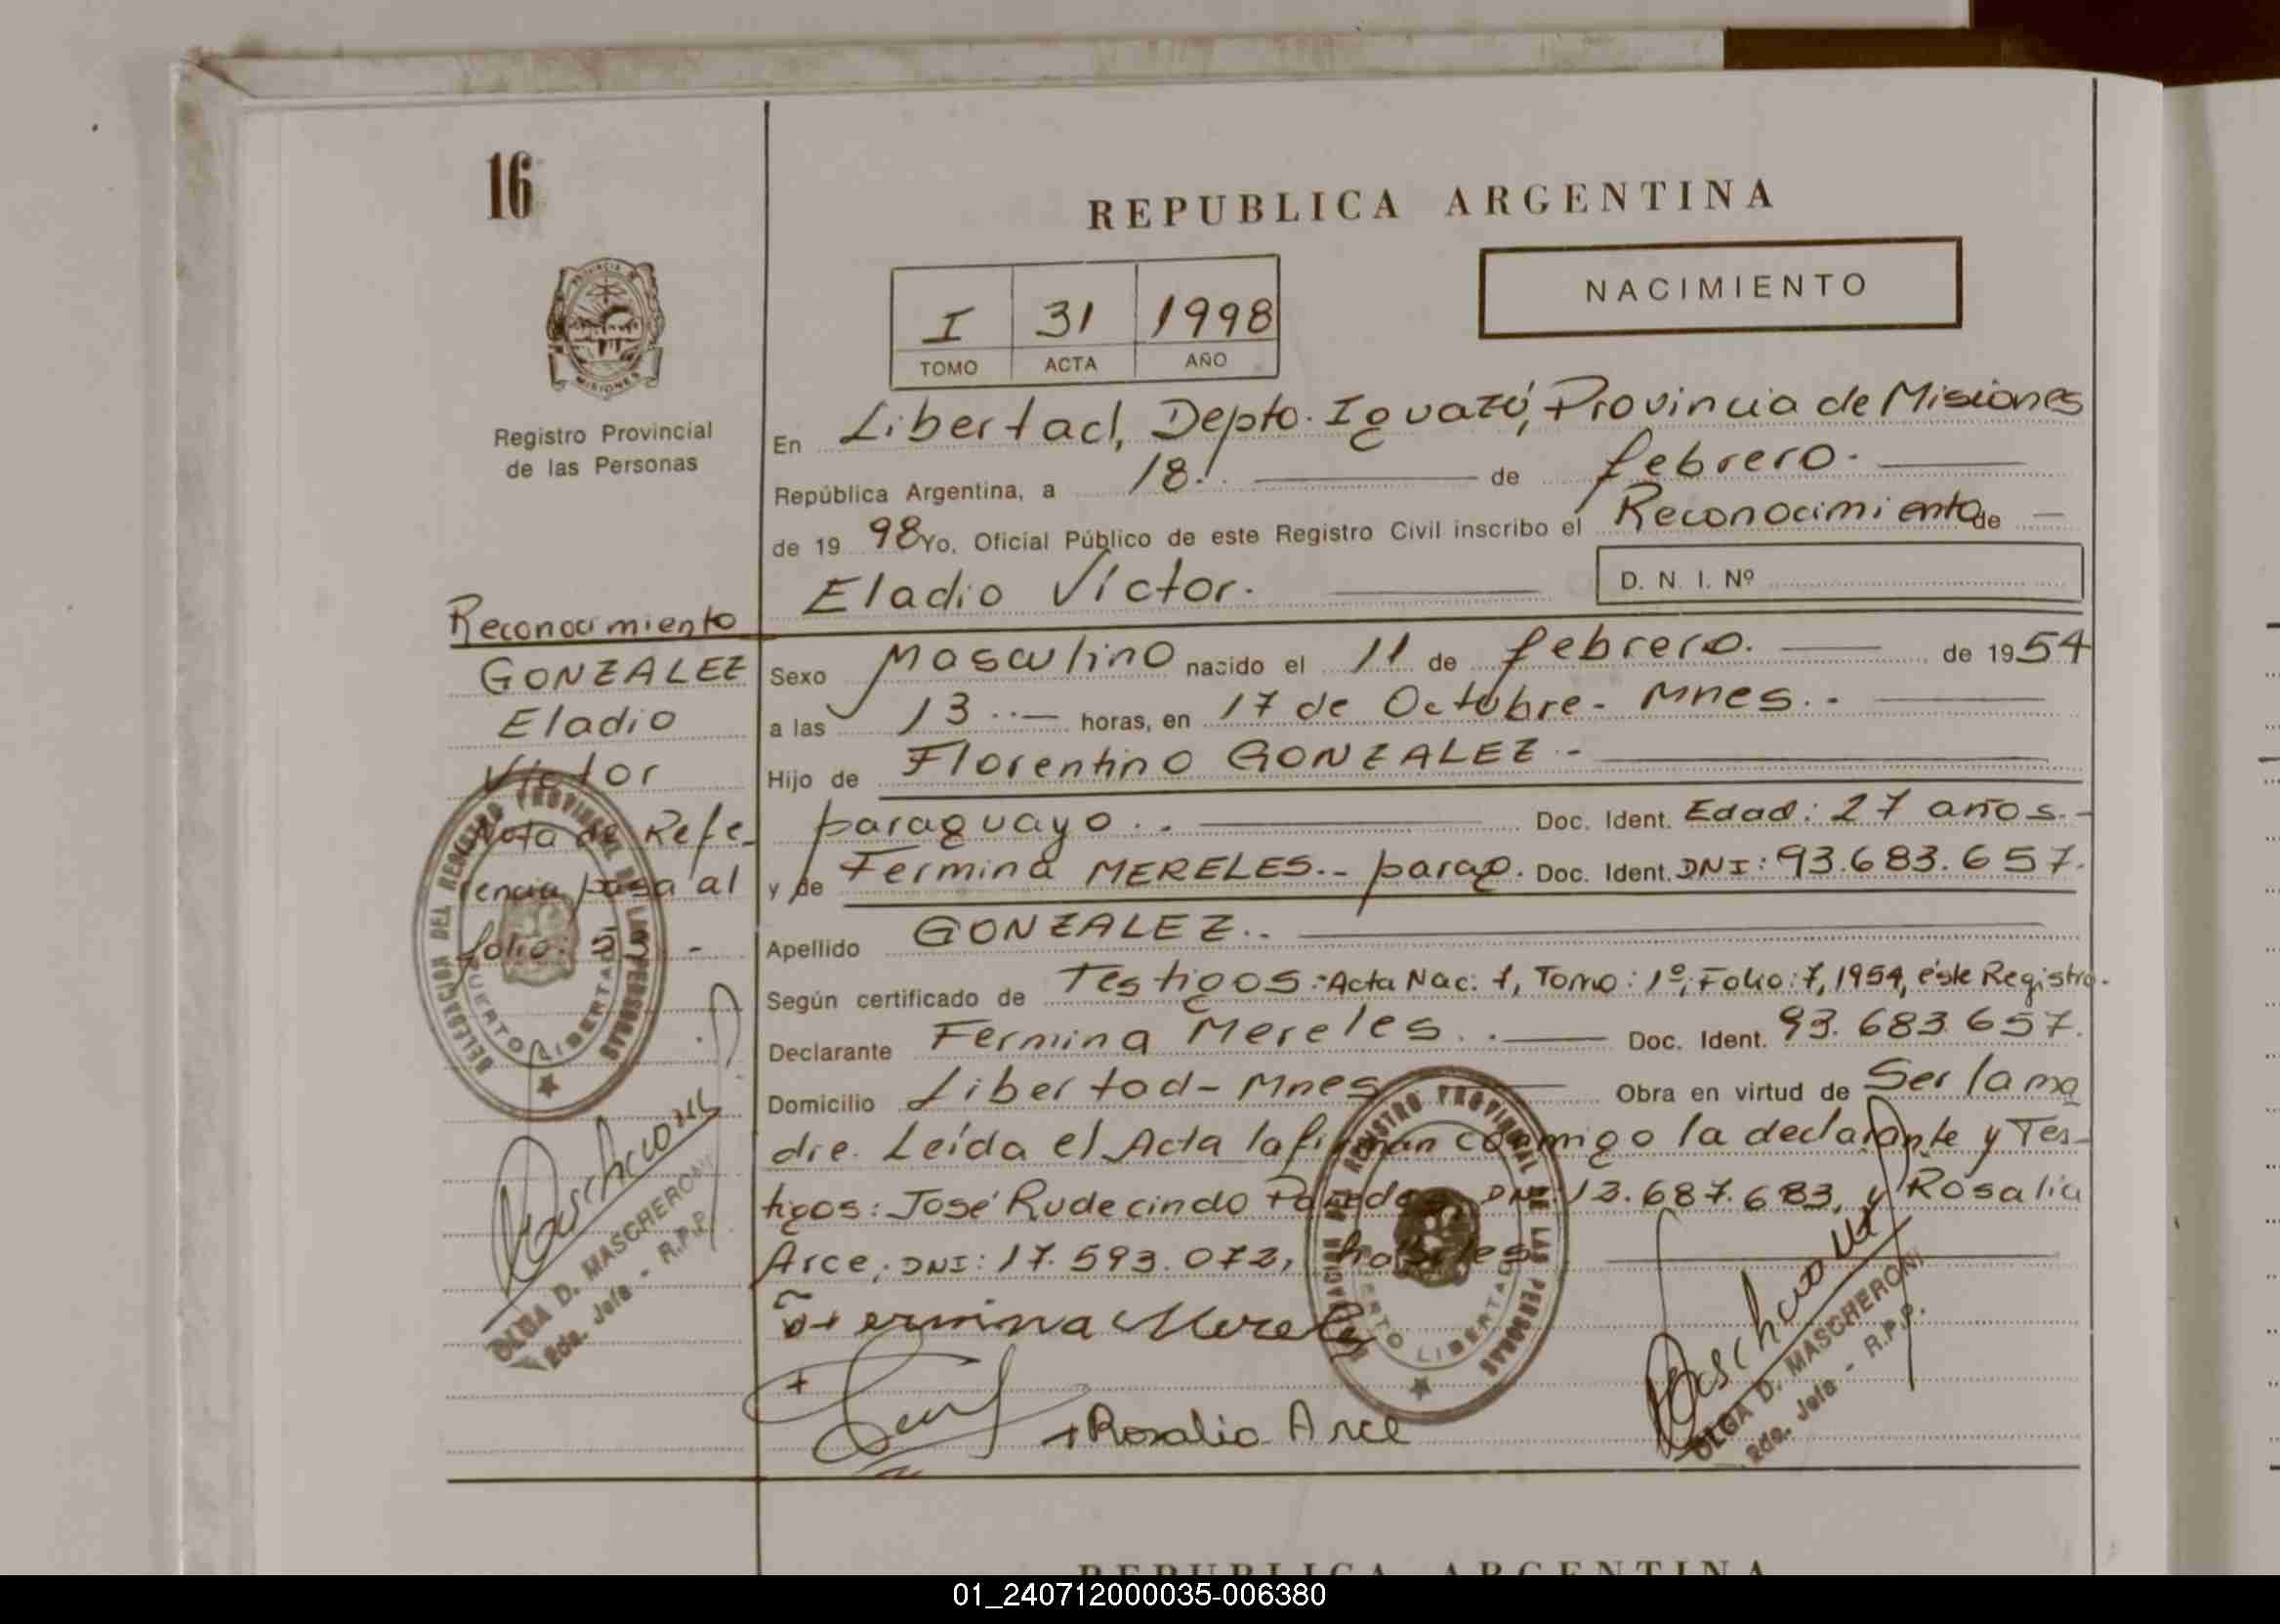 16
REPUBLICA ARGENTINA
NACIMIENTO
I 31 1998
TOMO ACTA AÑO
PROVINCIA DE
MISIONES
Registro Provincial
de las Personas
En Libertad, Depto. Iguazú, Provincia de Misiones
República Argentina, a 18.- de febrero.
de 19 98 Yo, Oficial Público de este Registro Civil inscribo el Reconocimiento de
Eladio Víctor. D. N. I. Nº
Reconocimiento
GONZALEZ
Eladio
Víctor
Nota de Refe-
rencia pasa al
folio:
Sexo Masculino nacido el 11 de febrero. de 19 54
a las 13 horas, en 17 de Octubre - Mnes.-
Hijo de Florentino GONZALEZ.-
paraguayo.. Doc. Ident. Edad: 27 años.-
y de Fermina MERELES.- parag. Doc. Ident. DNI: 93.683.657.
Apellido GONZALEZ..
Según certificado de Testigos:-Acta Nac: 7, Tomo: 1º, Folio: 7, 1954, éste Registro.
Declarante Fermina Mereles.. Doc. Ident. 93.683.657.
Domicilio Libertad - Mnes Obra en virtud de Ser la ma
dre. Leída el Acta la firman conmigo la declarante y Tes-
tigos: José Rudecindo Paredes, DNI: 13.687.683, y Rosalia
Arce, DNI: 17.593.072, habiles
Fermina Mereles
+
+Rosalia Arce
DELEGACION DEL REGISTRO PROVINCIAL DE LAS PERSONAS
PUERTO LIBERTAD
Mascheroni
OLGA D. MASCHERONI
2da. Jefa - R.P.P.
DELEGACION DEL REGISTRO PROVINCIAL DE LAS PERSONAS
PUERTO LIBERTAD
Mascheroni
OLGA D. MASCHERONI
2da. Jefa - R.P.P.
REPUBLICA ARGENTINA
01_240712000035-006380